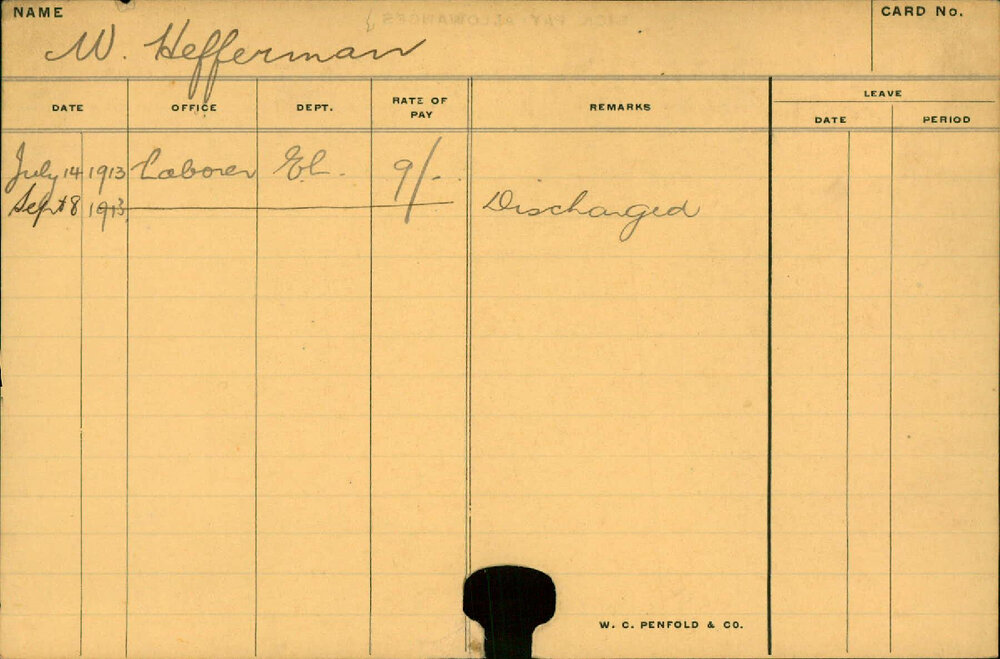 NAME
CARD No.
W. Hefferman
DATE OFFICE DEPT. RATE OF PAY REMARKS LEAVE
DATE PERIOD
July 14 1913 Laborer El. 9/-
Sept 8 1913 Discharged
W. C. PENFOLD & CO.